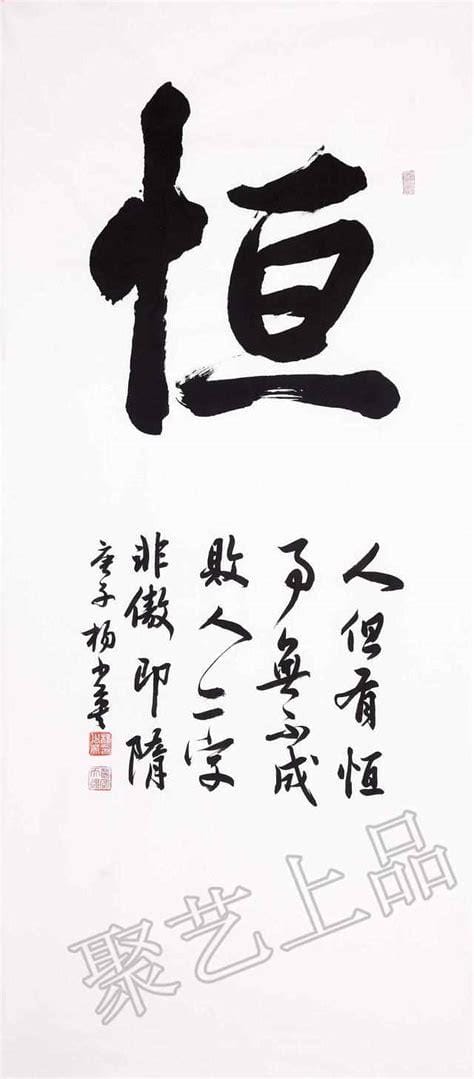 恒
人但有恒
事無不成
敗人二字
非傲即隋
庚子 杨
聚艺上品